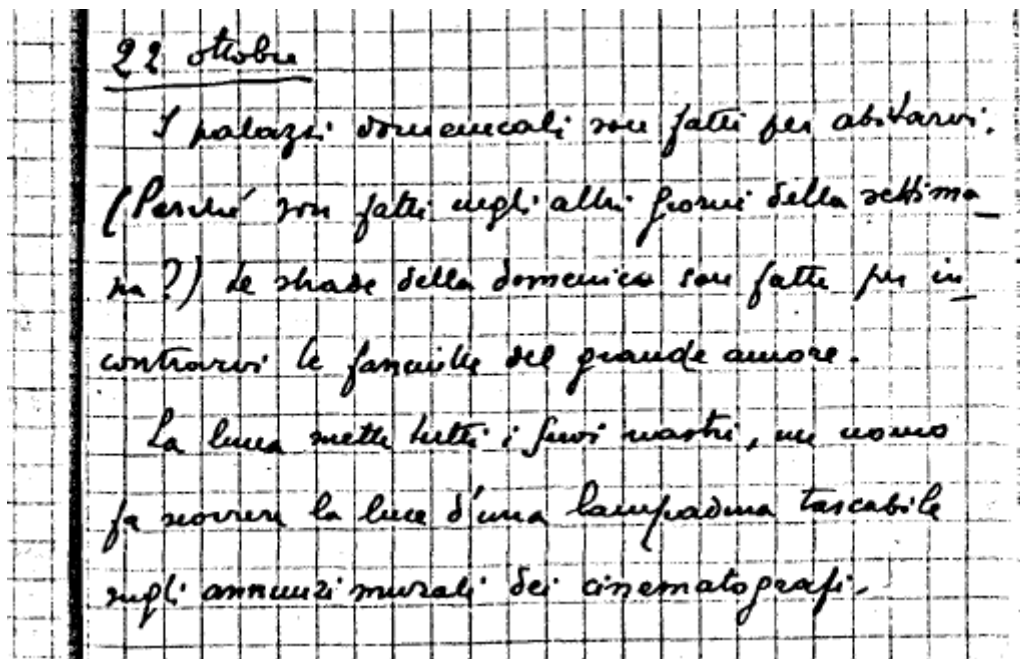 22 ottobre
I palazzi domenicali son fatti per abitarvi.
(Perché son fatti negli altri giorni della settima_
na?) Le strade della domenica son fatte per in_
contrarvi le fanciulle del grande amore.
La luna mette tutti i suoi nastri, un uomo
fa scorrere la luce d'una lampadina tascabile
sugli annunzi murali dei cinematografi.